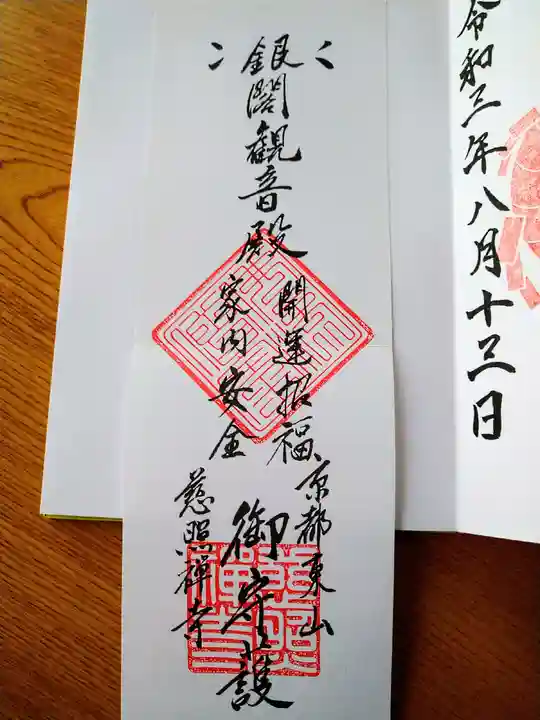 令和三年八月十三日
銀閣観音殿
開運招福
家内安全
京都東山
御守護
慈照禅寺